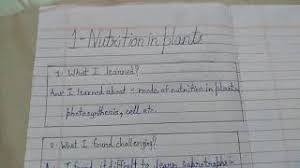 1-Nutrition in plants
1. What I learned?
Ans: I learned about mode of nutrition in plants,
photosynthesis, cell etc.
2. What I found challenging?
Ans I found it difficult to learn saprotrophs-